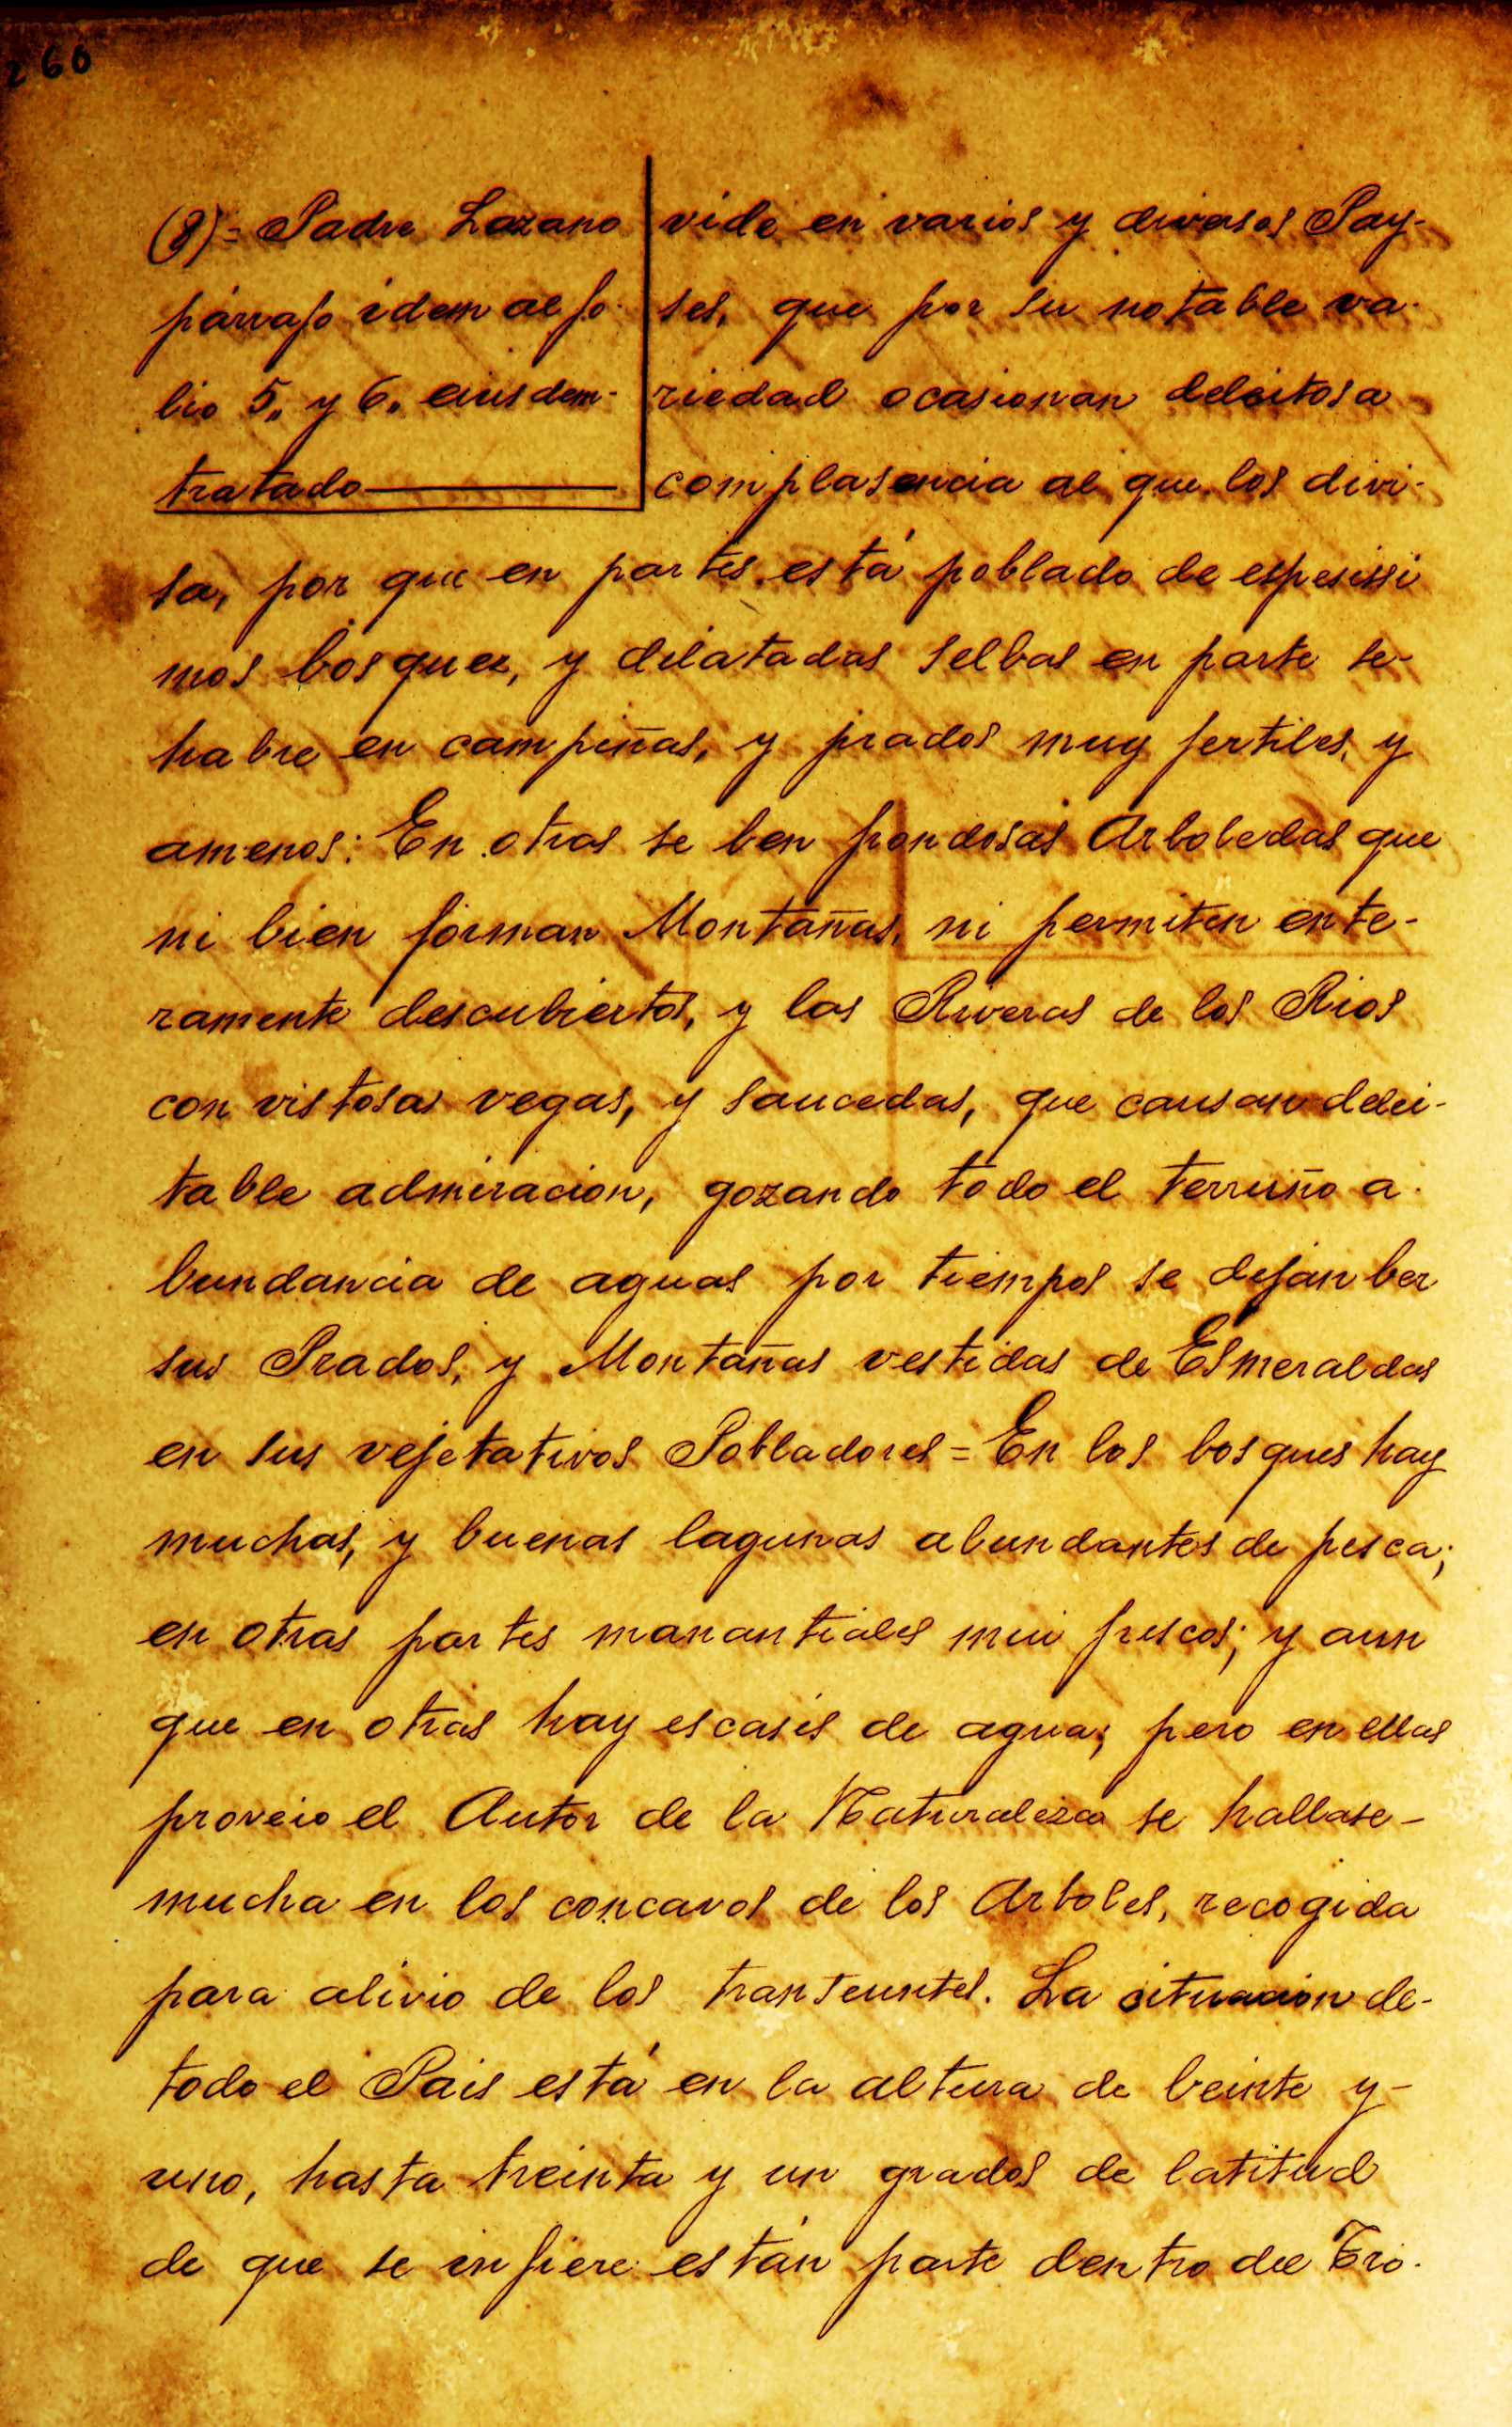 260
(8)= Padre Lozano
párrafo idem al fo-
lio 5,, y 6,, eiusdem-
tratado
vide en varios y diversos Pay-
ses, que por su notable va-
riedad ocasionan deleitosa
complasencia al que los divi-
sa, por que en partes está poblado de espesissi
mos bosques, y dilatadas selbas en parte se-
habre en campiñas, y prados muy fertiles, y
amenos: En otras se ben frondosas Arboledas que
ni bien forman Montañas, ni permiten ente-
ramente descubiertos, y las Riveras de los Rios
con vistosas vegas, y saucedas, que causan delei-
table admiracion, gozando todo el terruño a-
bundancia de aguas por tiempos se dejan ber
sus Prados, y Montañas vestidas de Esmeraldas
en sus vejetativos Pobladores = En los bosques hay
muchas, y buenas lagunas abundantes de pesca;
en otras partes manantiales mui frescos; y aun
que en otras hay escasés de agua; pero en ellas
proveio el Autor de la Naturaleza se hallase-
mucha en los concavos de los Arboles, recogida
para alivio de los transeuntes. La situacion de-
todo el Pais está en la altura de beinte y-
uno, hasta treinta y un grados de latitud
de que se infiere están parte dentro del Tró-